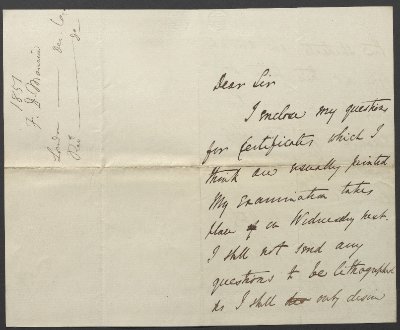 1851
F. D. Maurice
London
Dear Sir
I enclose my questions
for Certificates which I
think are usually printed
My Examination takes
place on Wednesday next.
I shall not send any
questions to be lithographed
As I shall only desire